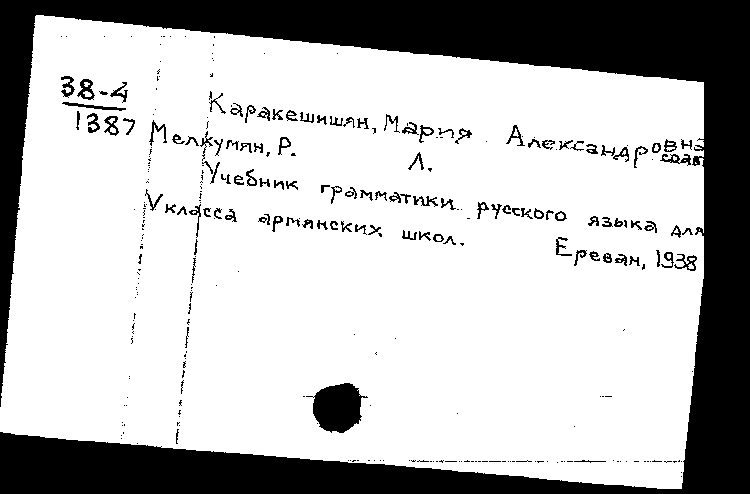 38-4
1387
Каракешишян, Мария Александровна
соавт
Мелкумян, Р. Л.
Учебник грамматики русского языка для
V класса армянских школ. Ереван, 1938